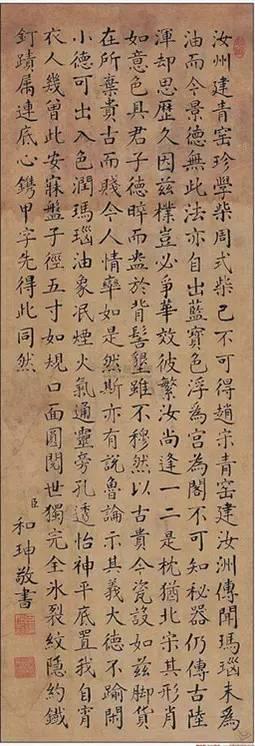 汝州建青窑珍學柴周式柴已不可得趙宋青窑建汝洲傳聞瑪瑙末為
油而今景德無此法亦自出藍寶色浮為宮為閣不可知秘器仍傳古陸
渾却思歷久因茲樸豈必爭華效彼繁汝尚逢一二是枕猶北宋其形肖
如意色具君子德晬而盎於背髻墾雖不穆然以古貴今瓷設如茲脚貨
在所棄貴古而賤今人情率如是然斯亦有說魯論示其義大德不踰閑
小德可出入色潤瑪瑙油象泯煙火氣通靈旁孔透怡神平底置我自宵
衣人幾曾此安寐盤子徑五寸如規口面圓閱世獨完全氷裂紋隱約鐵
釘蹟属連底心鐫甲字先得此同然
臣和珅敬書